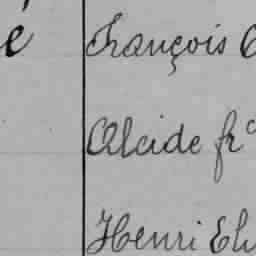 François
Alcide frc
Henri